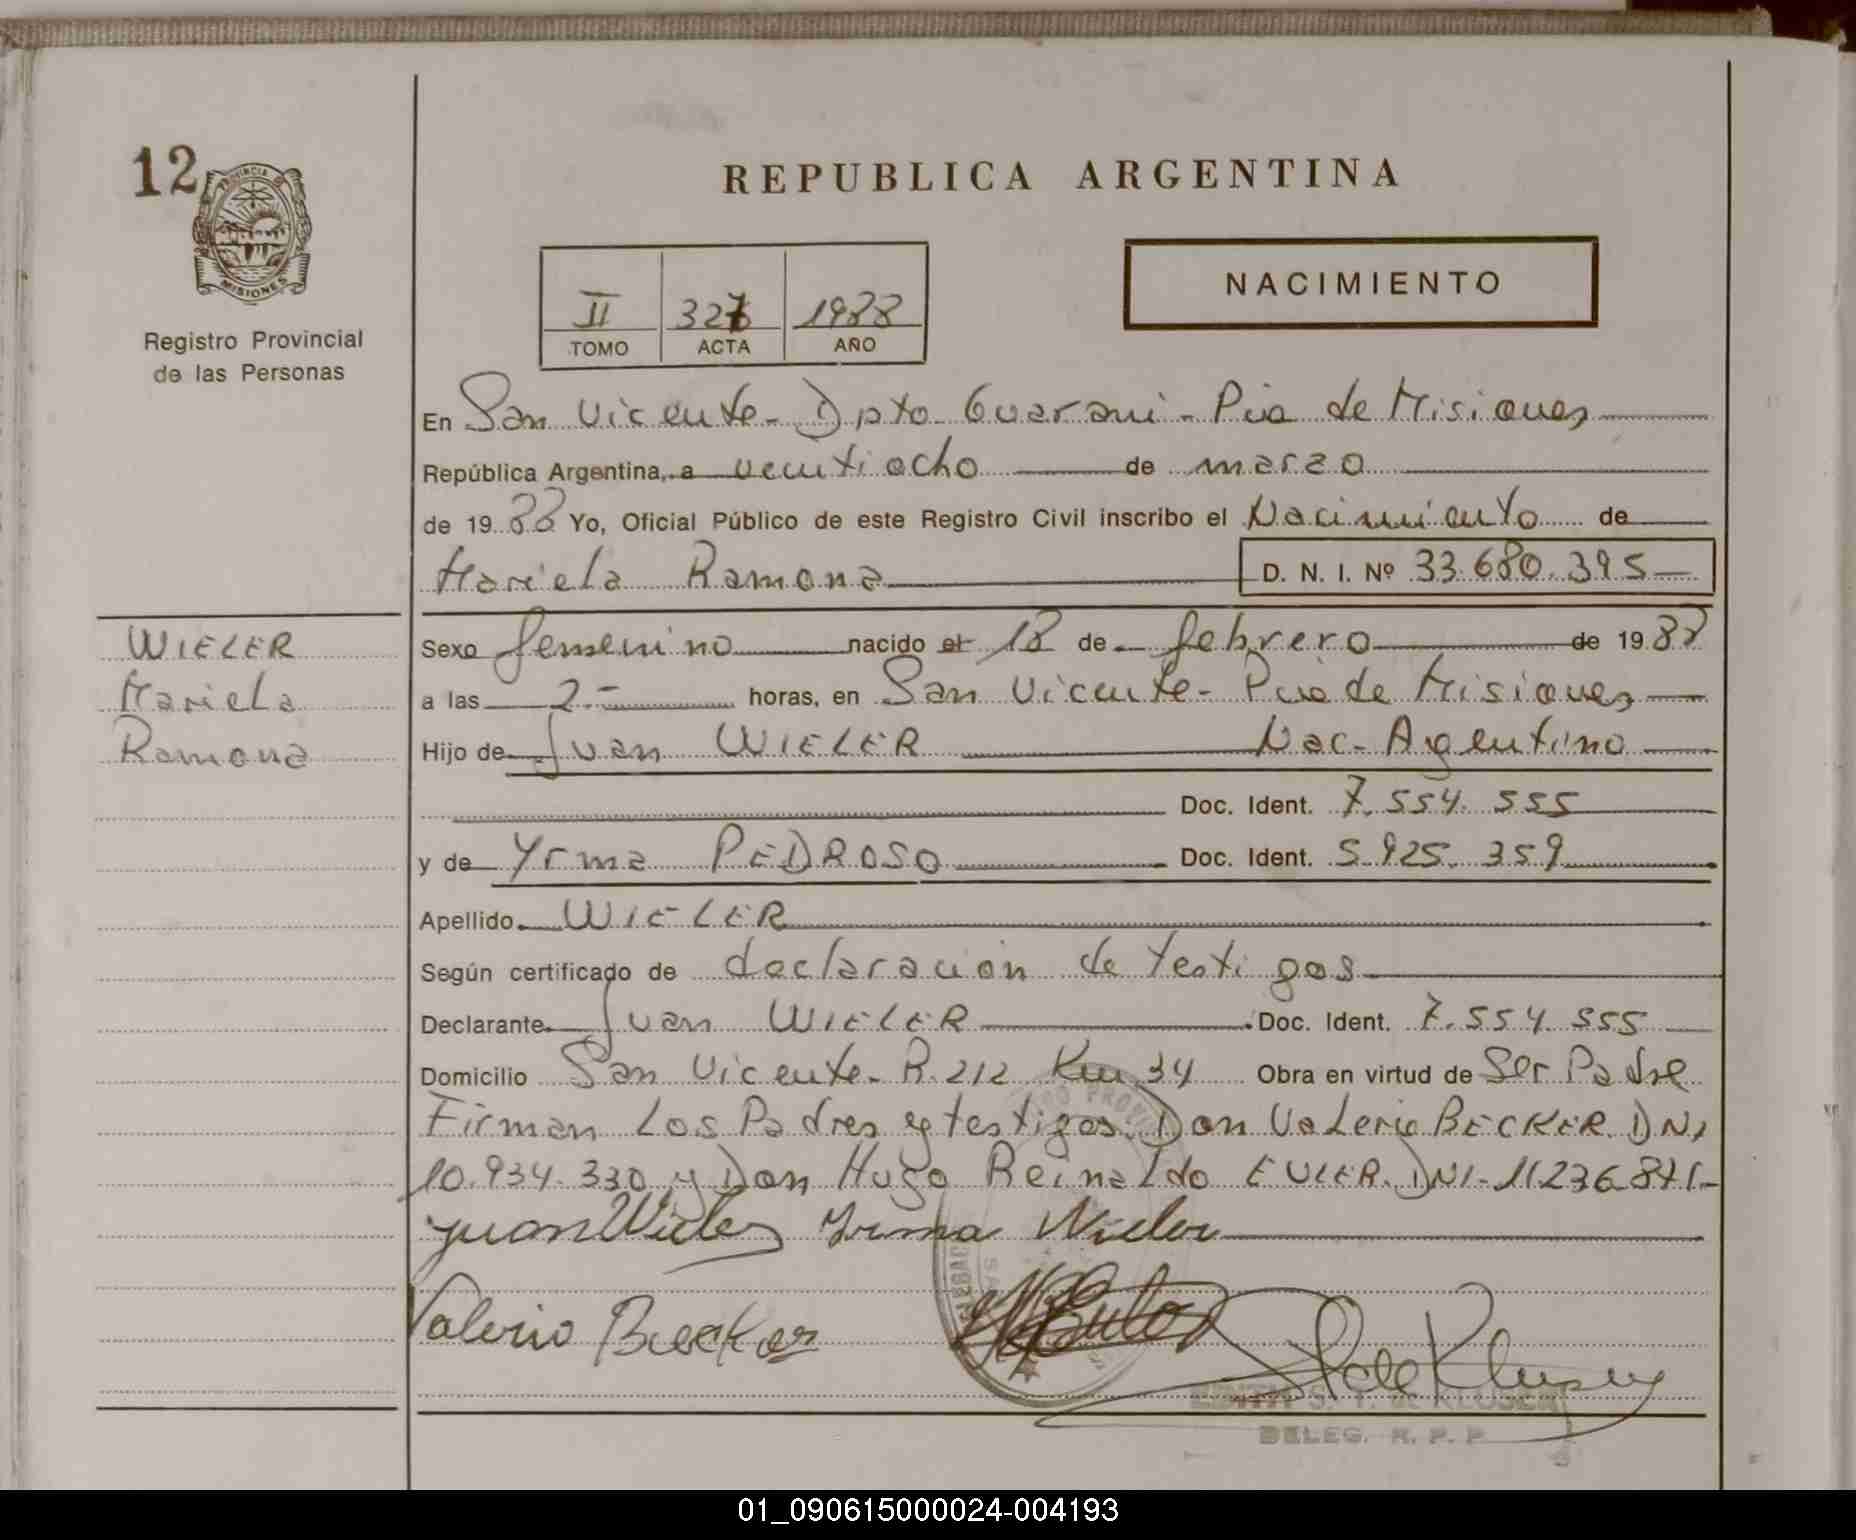 12
PROVINCIA DE
MISIONES
Registro Provincial
de las Personas
REPUBLICA ARGENTINA
II 327 1988
TOMO ACTA AÑO
NACIMIENTO
En San Vicente - Dpto Guarani - Pcia de Misiones
República Argentina, a veintiocho de marzo
de 1988 Yo, Oficial Público de este Registro Civil inscribo el Nacimiento de
Mariela Ramona D. N. I. Nº 33.680.395
WIELER
Mariela
Ramona
Sexo femenino nacido el 18 de febrero de 1988
a las 2 horas, en San Vicente - Pcia de Misiones
Hijo de Juan WIELER Nac. Argentino
Doc. Ident. 7.554.555
y de Yrma PEDROSO Doc. Ident. 5.925.359
Apellido WIELER
Según certificado de declaración de testigos
Declarante Juan WIELER Doc. Ident. 7.554.555
Domicilio San Vicente - R. 212 Km 34 Obra en virtud de Ser Padre
Firman Los Padres y testigos. Don Valerio BECKER DNI
10.934.330 y Don Hugo Reinaldo EULER. DNI - 11.236.841-
Juan Wieler Irma Wieler
Valerio Becker
EDITH S. T. de KLUSEN
DELEG. R. P. P.
01_090615000024-004193